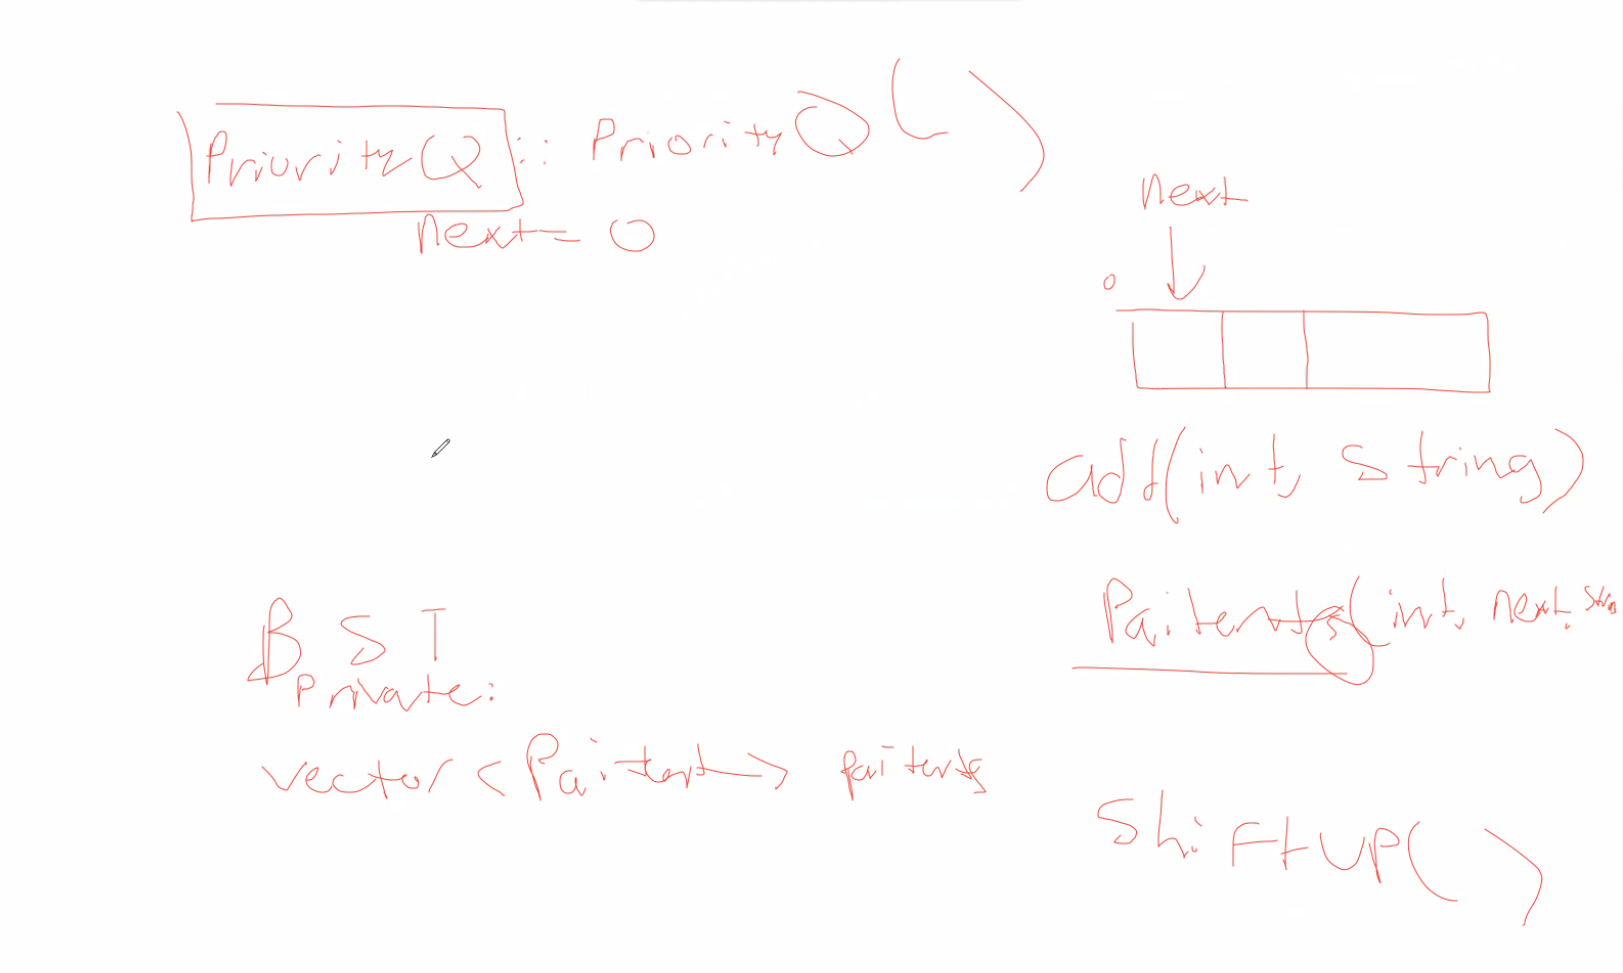 PriorityQ :: PriorityQ( )
next = 0
next
0
add(int, string)
Paitents(int, next, string
BST
Private:
vector <Paitent> paitents
ShiftUP( )